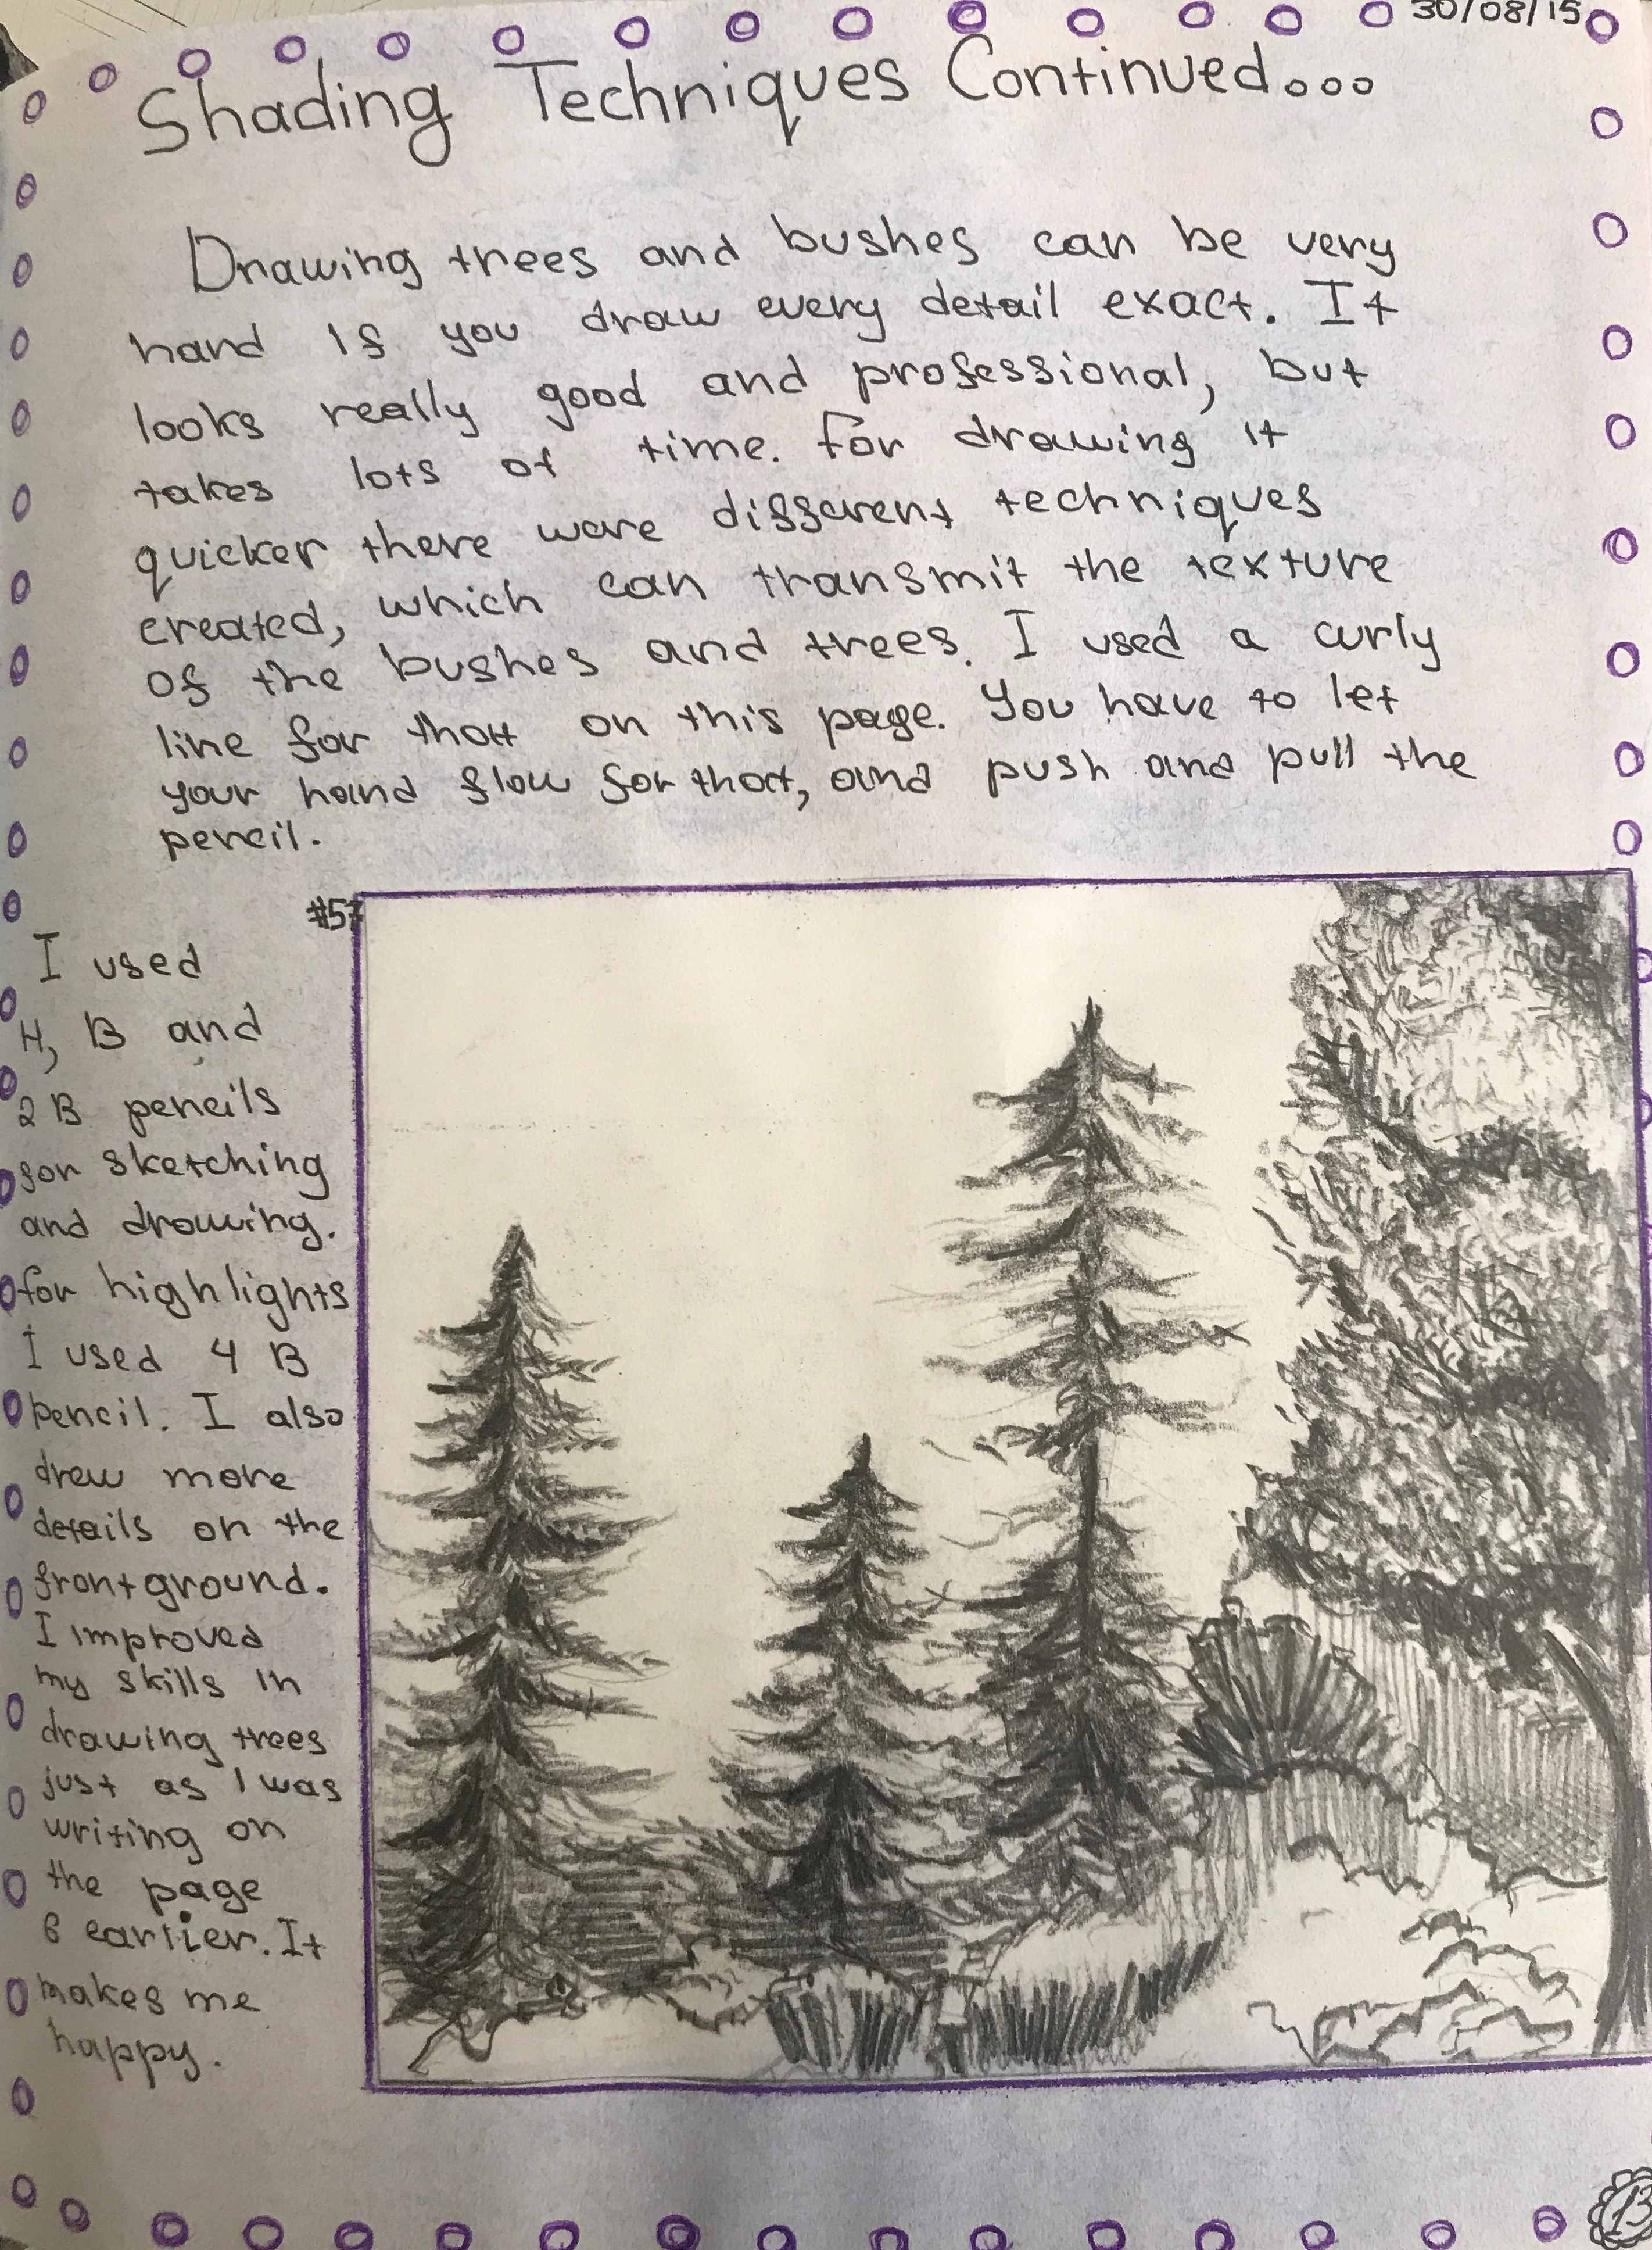 30/08/15
Shading Techniques Continued...
Drawing trees and bushes can be very
hard if you draw every detail exact. It
looks really good and professional, but
takes lots of time. For drawing it
quicker there were different techniques
created, which can transmit the texture
of the bushes and trees. I used a curly
line for that on this page. You have to let
your hand flow for that, and push and pull the
pencil.
#57
I used
H, B and
2B pencils
for sketching
and drawing.
for highlights
I used 4B
pencil. I also
drew more
details on the
frontground.
I improved
my skills in
drawing trees
just as I was
writing on
the page
6 earlier. It
makes me
happy.
13